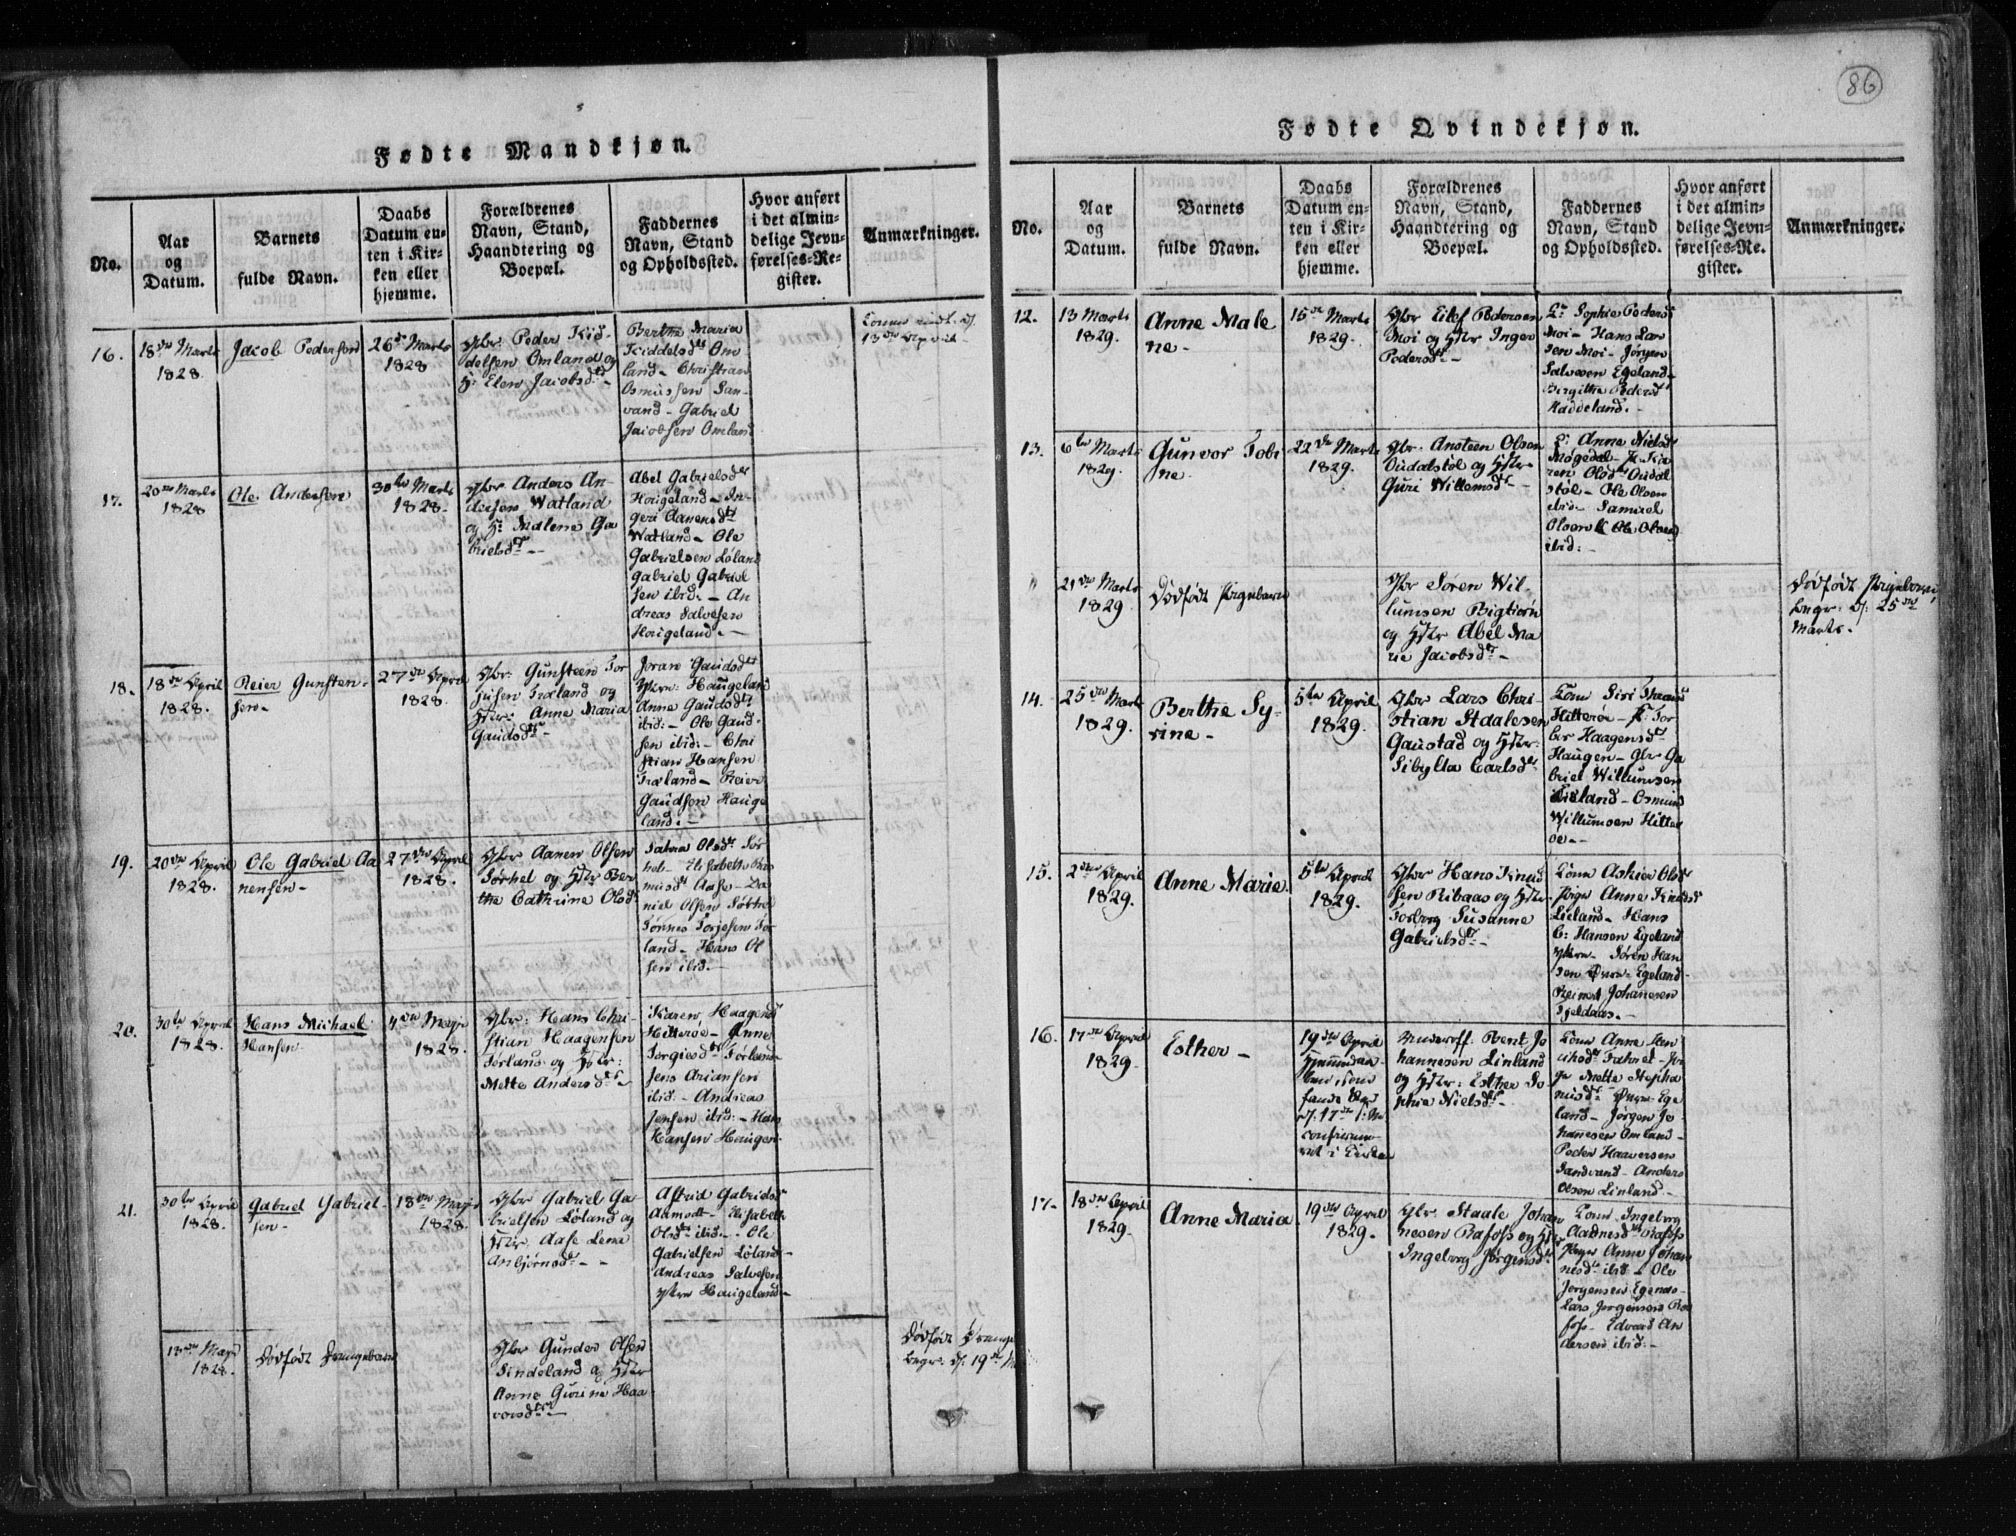 Fødte Mandkjøn.
No.
Aar
og
Datum.
Barnets
fulde Navn.
Daabs
Datum en-
ten i Kir-
ken eller
hjemme.
Forældrenes
Navn, Stand,
Haandtering og
Boepæl.
Faddernes
Navn, Stand
og Opholdssted.
Hvor anført
i det almin-
delige Jevn-
førelses-Re-
gister.
Anmærkninger.
16.
18de Marts
1828.
Jacob Pedersen
26de Marts
1828
Gbr. Peder Kid-
delsen Omland og
H: Elen Jacobsdtr
Berthe Maria
Kiddelsdtr Om
land - Christian
Osmunsen San-
vand - Gabriel
Jacobsen Omland
17.
20de Marts
1828
Ole Andersen
30te Marts
1828.
Gbr Anders An-
dersen Watland
og H: Malene Ga
brielsdtr - -
Abel Gabrielsdtr
Houigeland - In-
geri Aanensdtr
Watland - Ole
Gabrielsen Løland
Gabriel Gabriel
sen ibid: - An
dreas Salvesen
Houigeland. -
18.
18de April
1828.
Reier Gunsten-
sen -
27de April
1828.
Gbr: Gunsteen Tor
Træland og
Hstr: Anne Maria
Gaudsdtr -
Joran Gaudsdtr
Haugeland
Anne Gaudsdtr
ibid: - Ole Gaud-
sen ibid: - Chri
stian Hansen
Træland - Reier
Gaudsen Hauge
land. -
19.
20de April
1828.
Ole Gabriel Aa
nensen -
27de April
1828.
Gbr Aanen Olsen
Sørhel og Hstr Ber
the Cathrine Olsdtr
Olsdtr Sør
hel - Elisabeth
Aase - Da
niel Olsen Sørhel
Tønnes Torjesen
land - Hans Ol
sen ibid. -
20.
30te April
1828.
Hans Michael
Hansen
4de Maji
1828.
Gbr: Hans Chri-
stian Haagensen
og Hstr:
Mette Andersdtr
Karen Haagensdtr
Hitterøe - Anne
Jens Ariansen
ibid: - Andreas
Jensen ibid: - Hans
Hansen Haugen
21.
30te April
1828.
Gabriel Gabriel-
sen -
18de Maji
1828.
Gbr Gabriel Ga
brielsen Løland og
Hstr Aase Lene
Anbjørnsdtr - -
Astrid Gabrielsdtr
Aamodt - Elisabeth
Olsdtr ibid: - Ole
Gabrielsen Løland -
Andreas Salvesen
Haugeland -
13de Maji
1828.
Dødfødt Drengebarn
Gbr Gunder Olsen
Sindeland og Hstr
Anne Gurine Haa
vorsdtr -
Dødfødt Drenge
begr: d: 19de
86
Fødte Qvindekjøn.
No.
Aar
og
Datum.
Barnets
fulde Navn.
Daabs
Datum en-
ten i Kir-
ken eller
hjemme.
Forældrenes
Navn, Stand,
Haandtering og
Boepæl.
Faddernes
Navn, Stand
og Opholdssted.
Hvor anført
i det almin-
delige Jevn-
førelses-Re-
gister.
Anmærkninger.
12.
13 Marts
1829.
Anne Male
ne -
15de Marts
1829.
Gbr Eilef Pedersen
Moi og Hstr Inger
Pedersdtr -
K: Sophie Pedersdtr
Moi - Hans Lar
sen Moi - Jørgen
Salvesen Egeland -
Birgithe Pedersdtr
Haddeland. -
13.
6te Marts
1829.
Gunvor Tobi
ne -
22de Marts
1829.
Gbr. Ansteen Olsen
Oudalstøl og Hstr
Guri Willemsdtr -
K: Anne Nielsdtr
Møgedal - K: Ka
ren Olsdtr Oudal
støl - Ole Olsen
ibid: - Samuel
Olsen & Ole Olsen
ibid: -
21de Marts
1829.
Dødfødt Pigebarn
Gbr Søren Wil-
lumsen Bigtiørn
og Hstr Abel Ma
rie Jacobsdtr -
Dødfødt Pigebarn,
begr: d: 25de
Marts. -
14.
25de Marts
1829.
Berthe Sy-
rine -
5te April
1829.
Gbr Lars Chri-
stian Stdalesen
Gaustad og Hstr:
Sibylla Carlsdtr
Kone Siri
Hitterøe - K: Tor
bor Haagensdtr
Haugen - Gbr Ga
briel Willumsen
Lieland - Osmund
Willumsen Hitter
øe - -
15.
2den April
1829.
Anne Marie.
5te April
1829.
Gbr Hans Knud
sen Ribaas og Hstr
Torborg Susanne
Gabrielsdtr -
Kone Olsdtr
Pige Anne Knudsdtr
Lieland - Hans
C: Hansen Egeland
- Søren Han
sen Øvre-Egeland -
Reinert Johannesen
Fjeldaas. -
16.
17de April
1829.
Esther -
19de April
1829.
Bent Jo
hannesen Linland
og Hstr: Esther So
phie Nielsdtr -
Kone Anne
Mette Stepha
nusdtr Øvre-Ege
land - Jørgen Jo
hannesen Omland -
Peder Haaversen
Sandvand - Anders
Olsen Linland. -
17.
18de April
1829.
Anne Maria
19de April
1829.
Gbr. Staale Johan
nesen Rafoss og Hstr
Ingeborg Jørgensdtr
Kone Ingeborg
Aadnesdtr Rafoss
Pige Anne Johan
nesdtr ibid - Ole
Jørgensen Egenes -
Lars Jørgensen Ra
foss - Edvard An
dersen ibid: -